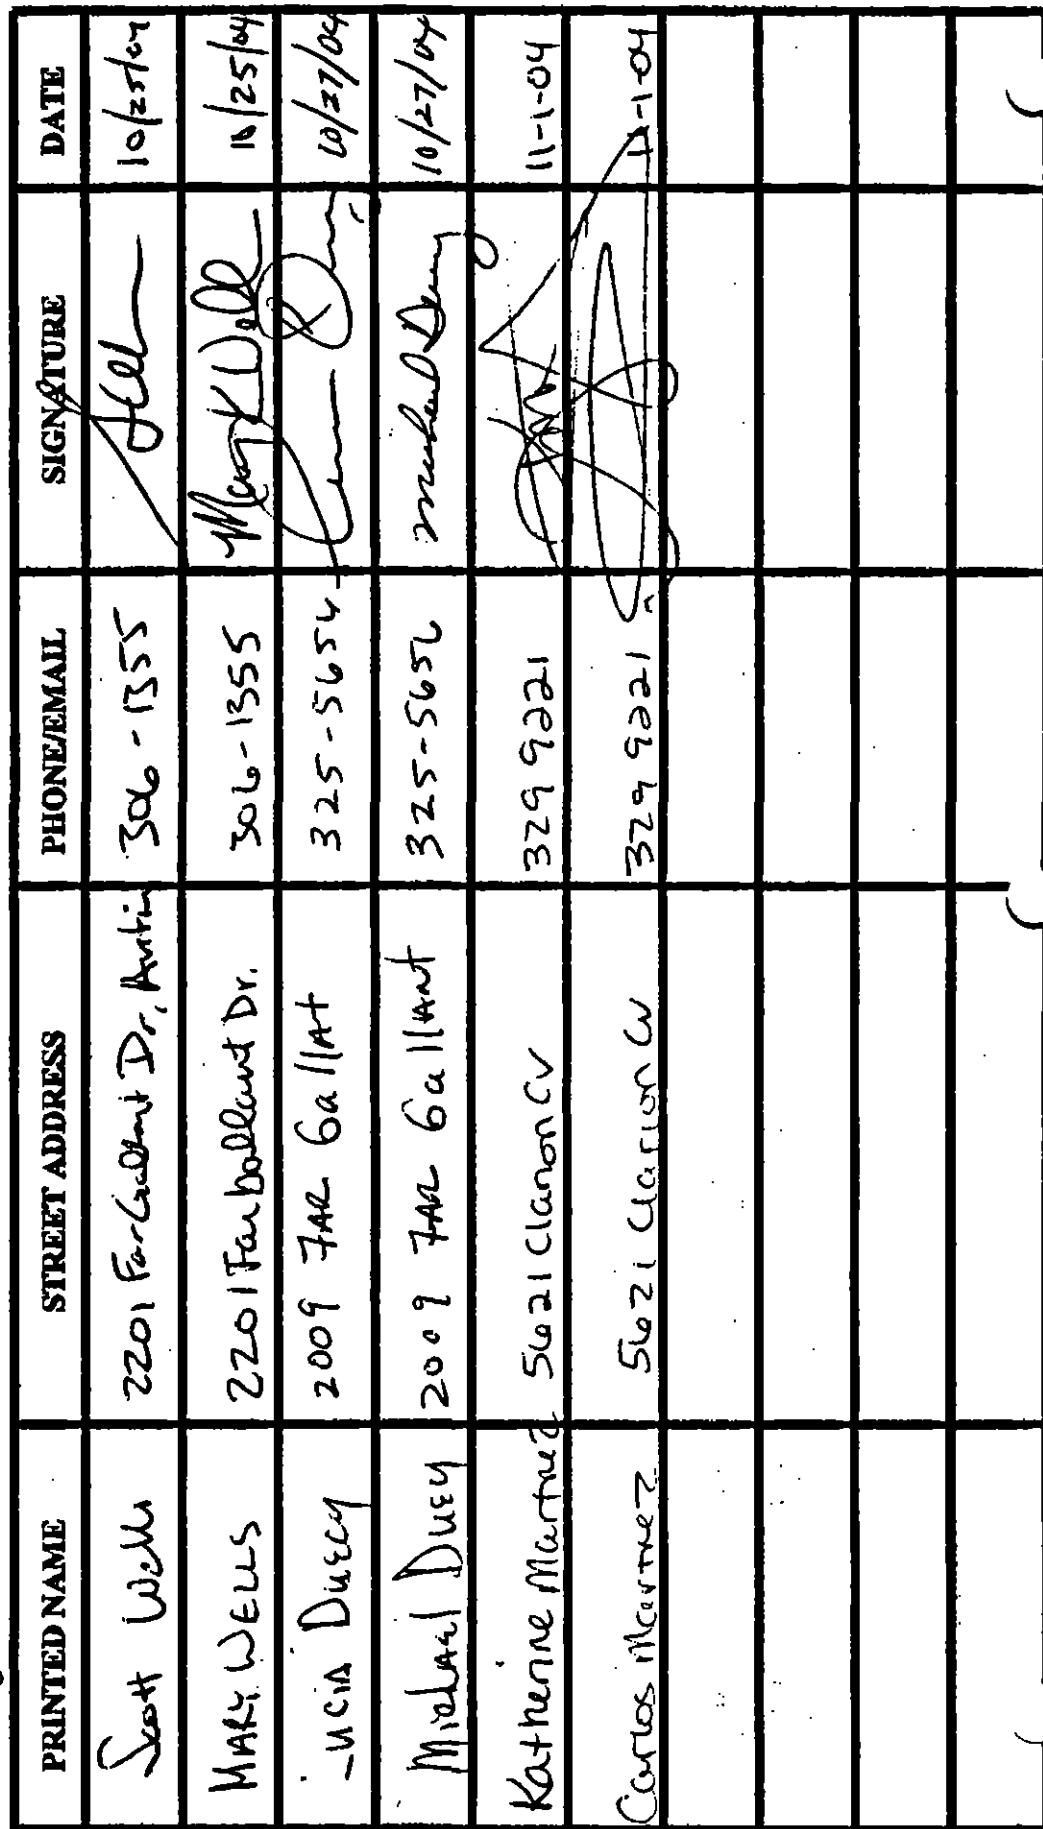 PRINTED NAME STREET ADDRESS PHONE/EMAIL SIGNATURE DATE
Scott Wells 2201 Far Gallant Dr, Austin 306-1355 10/25/04
MARY WELLS 2201 Far Gallant Dr. 306-1355 Mary K Wells 10/25/04
Lucia Duecy 2009 FAR GallAnt 325-5656 10/27/04
Michael Duecy 2009 FAR GallAnt 325-5656 Michael Duecy 10/27/04
Katherine Martinez 5621 Clarion CV 329 9221 11-1-04
Carlos Martinez 5621 Clarion CV 329 9221 11-1-04